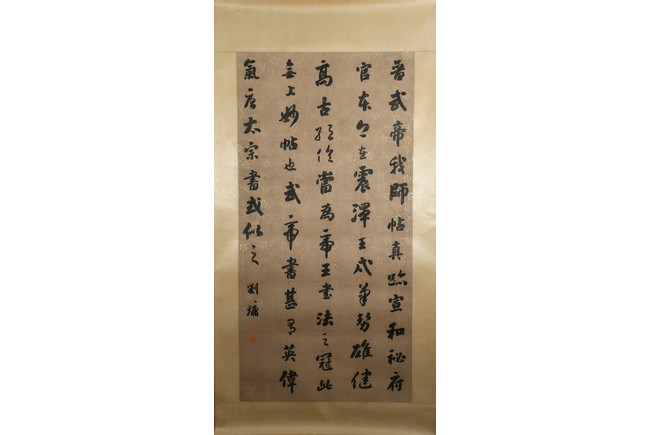 晉武帝我師帖真跡宣和祕府
官本今在震澤王氏筆勢雄健
高古絕倫當為帝王書法之冠此
無上妙帖也武帝書甚有英偉
氣唐太宗書或似之 劉墉